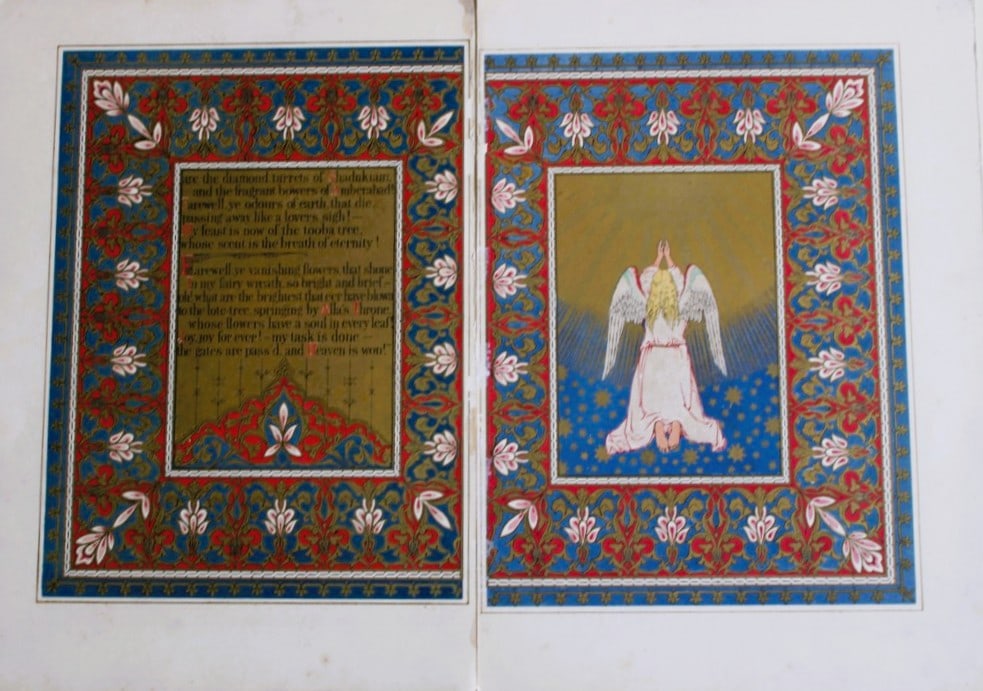 are the diamond turrets of Shadukiam,
and the fragrant bowers of Amberabad!
Farewell, ye odours of earth, that die,
passing away like a lover's sigh!—
My feast is now of the tooba tree,
whose scent is the breath of eternity!
Farewell, ye vanishing flowers, that shone
in my fairy wreath, so bright and brief—
oh! what are the brightest that e'er have blown
to the lote-tree, springing by Alla's Throne,
whose flowers have a soul in every leaf!
Joy, joy for ever!—my task is done—
the gates are pass'd, and Heaven is won!"